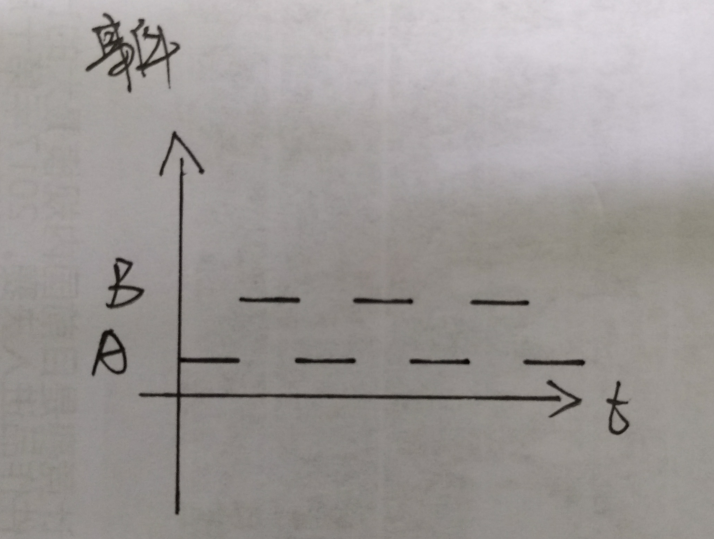 事件
B
A
t